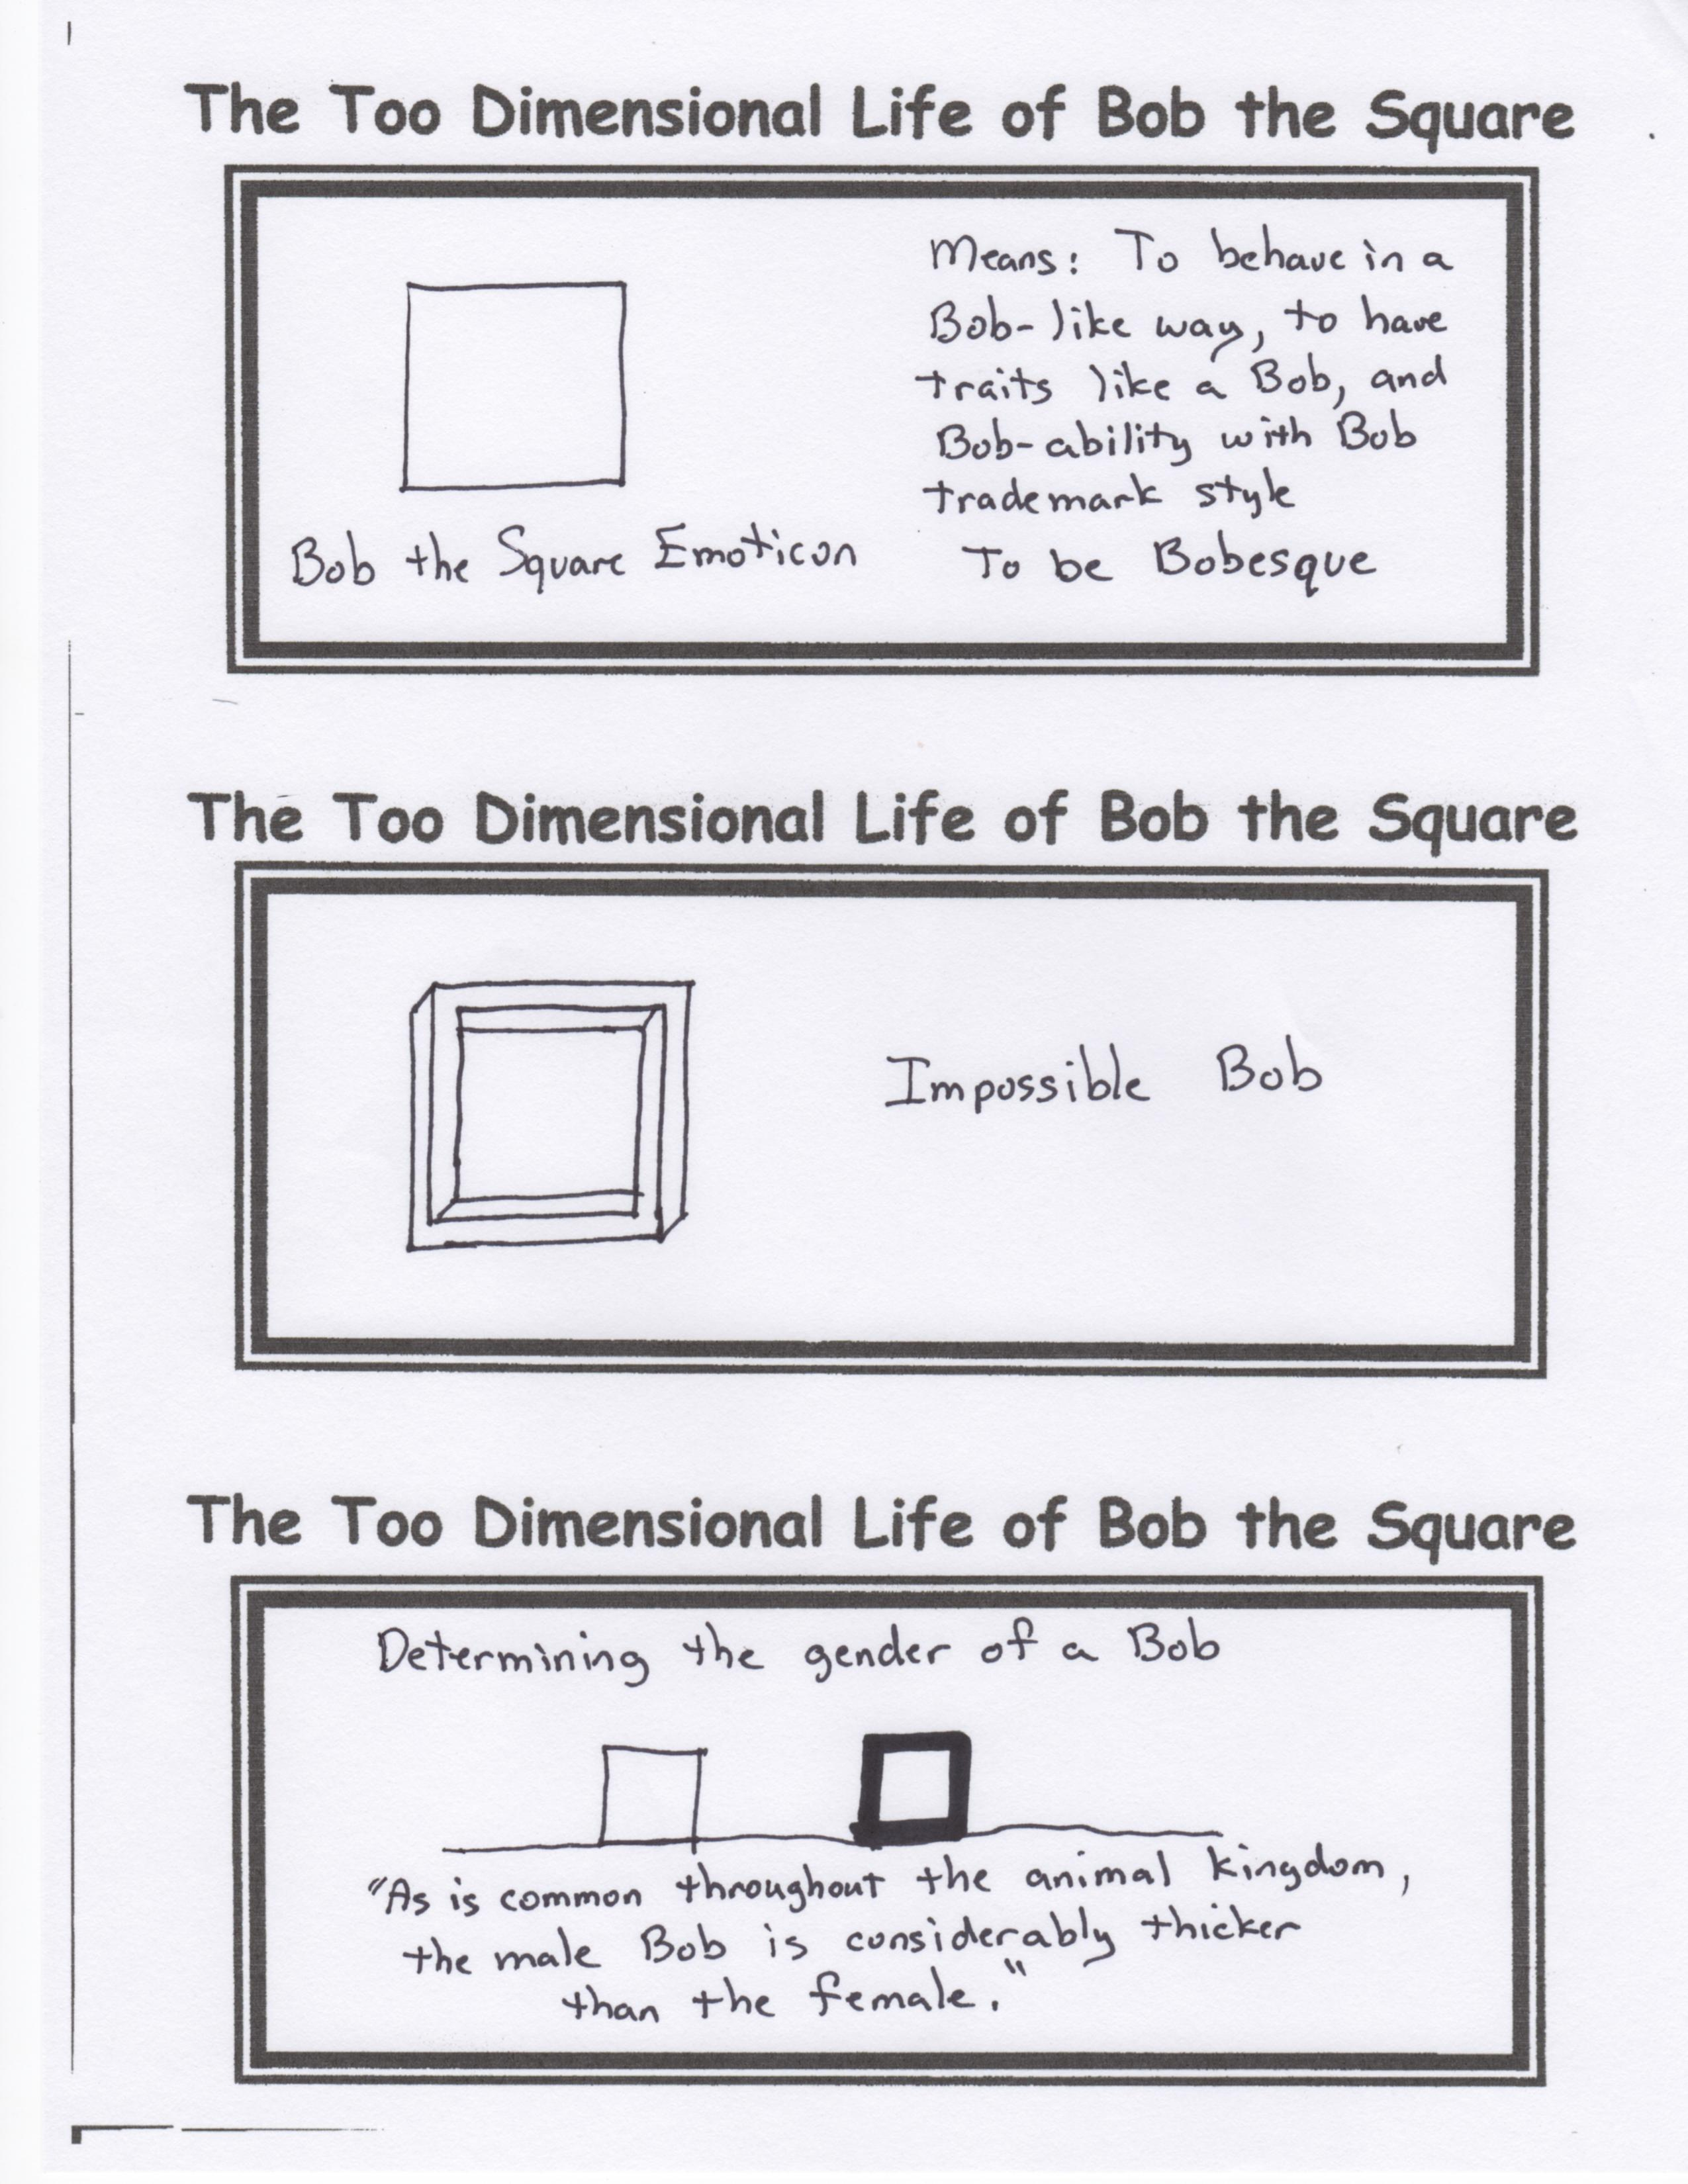 The Too Dimensional Life of Bob the Square
Means: To behave in a
Bob-like way, to have
traits like a Bob, and
Bob-ability with Bob
trademark style
Bob the Square Emoticon
To be Bobesque
The Too Dimensional Life of Bob the Square
Impossible Bob
The Too Dimensional Life of Bob the Square
Determining the gender of a Bob
"As is common throughout the animal kingdom,
the male Bob is considerably thicker
than the female."